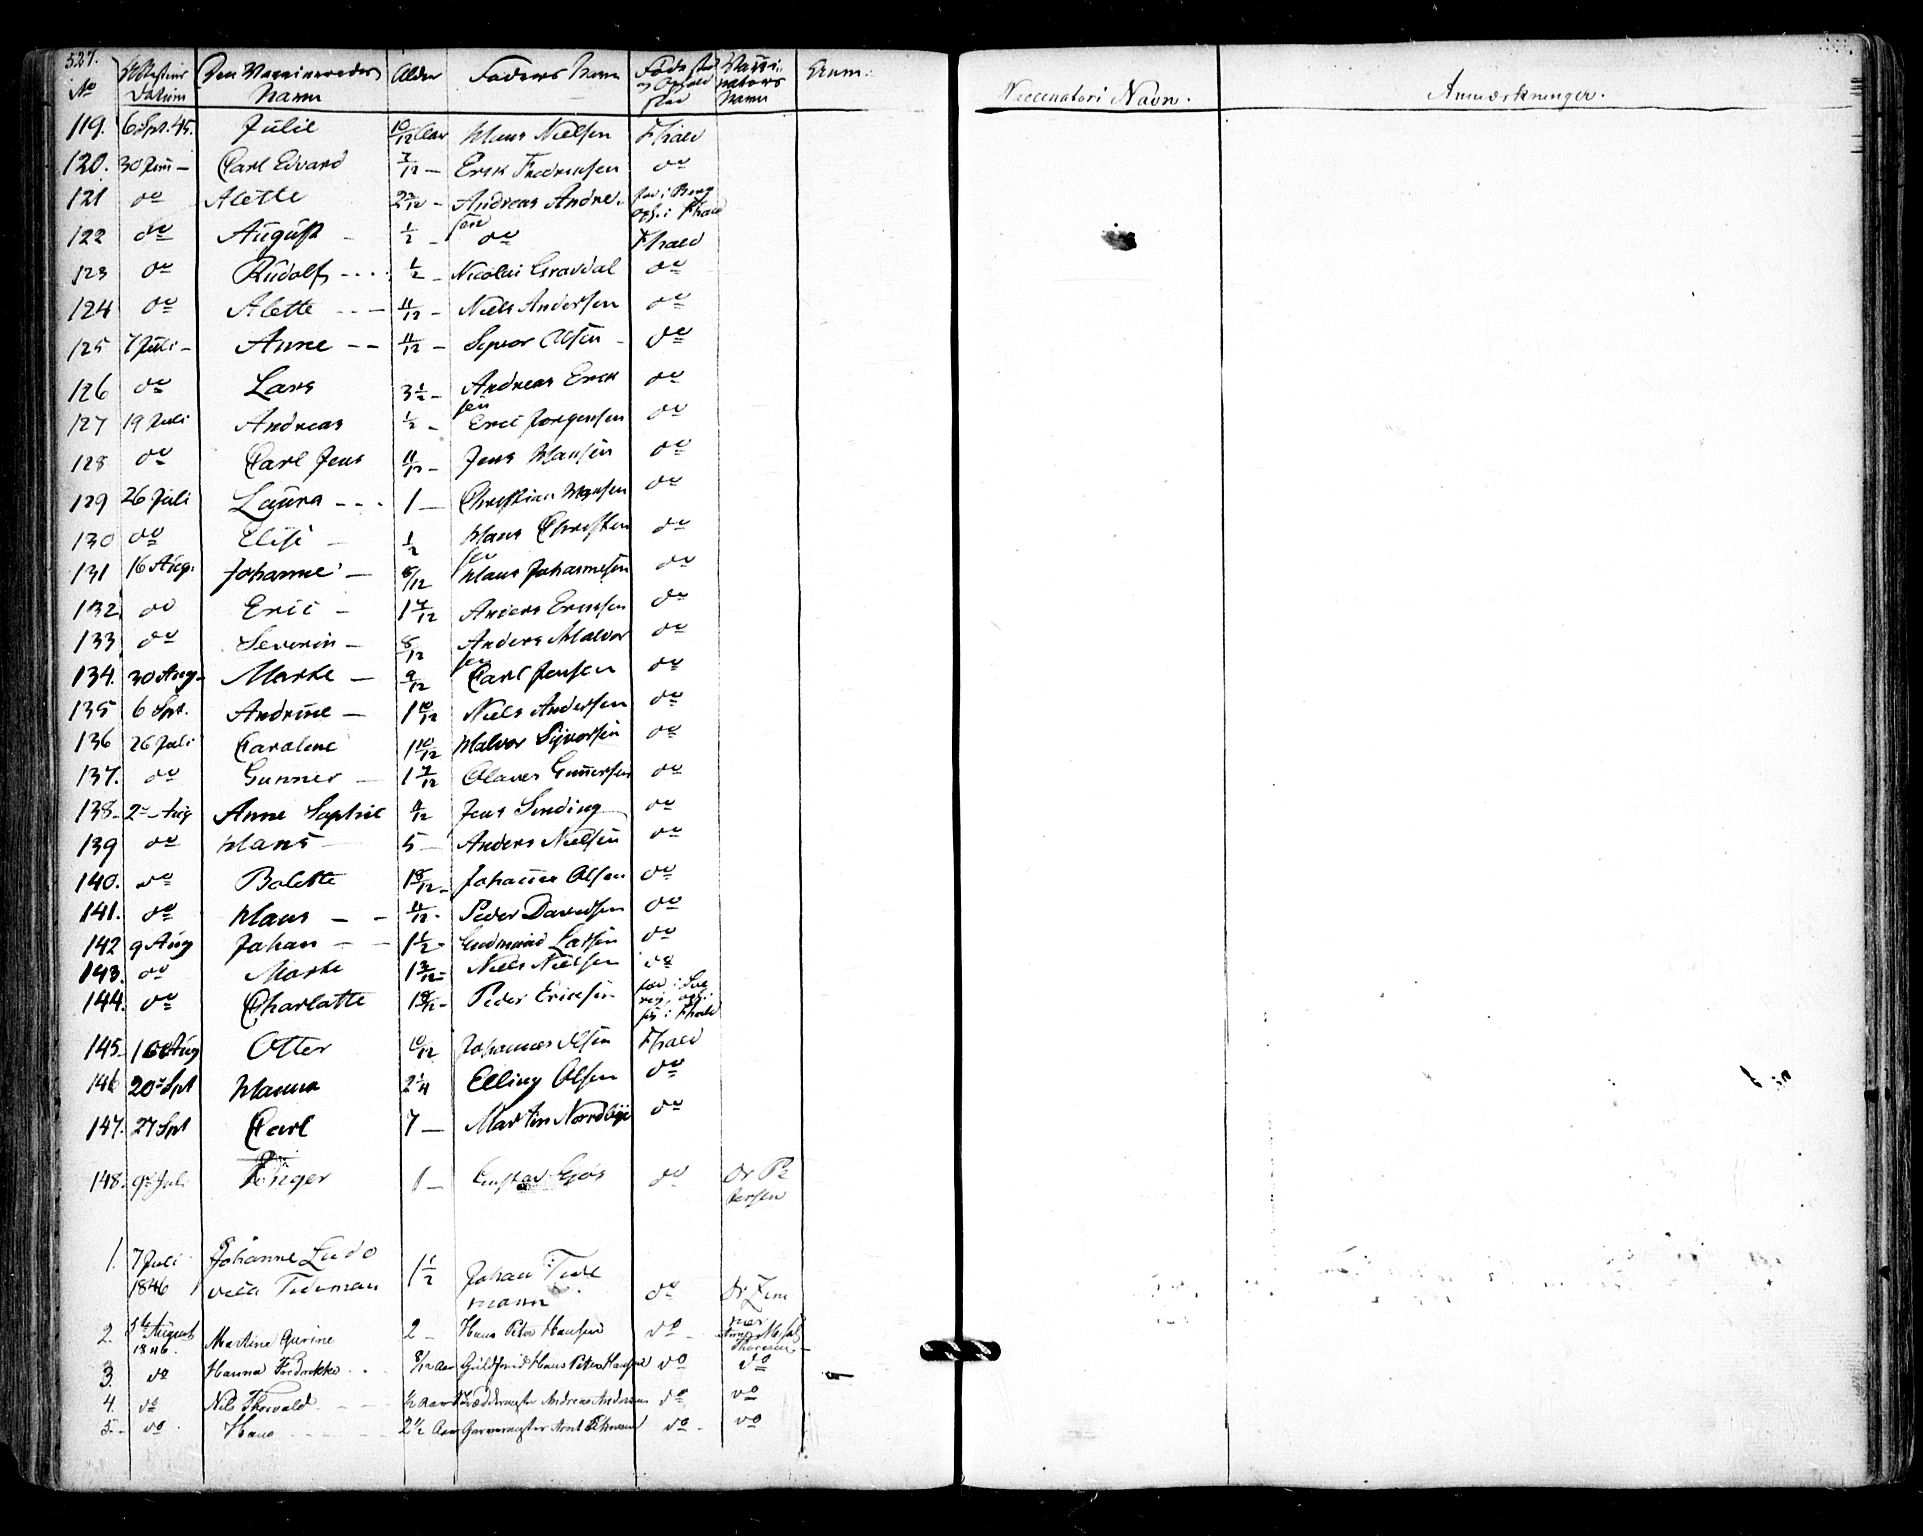 527.
No Attestens Datum Den Vaccineredes Navn Alder Faders Navn Fødested og Opholdsted Vaccinators Navn Anm:
Vaccinatori Navn. Anmærkninger.
119. 6 Spt. 45. Julie 10/12 Aar Hans Nielsen Fhald
120. 30 Juni – Carl Edvard 7/12 – Erik Fredriksen do
121 do Alette 2 2/12 – Andreas Andresen fød i Berg oph. i Fhald
122 do August – 1/2 – do Fhald
123 do Rudolf – 1/2 – Nicolai Gravdal do
124 do Alette – 11/12 – Niels Andersen do
125 7 Juli – Anne – 11/12 – Olsen – do
126 do Lars 3 1/2 – Andreas Ericksen do
127 19 Juli Andreas 1/2 – Eric Jørgensen do
128 do Carl Jens 11/12 – Jens Hansen do
129 26 Juli Laura – 1 – Christian Hansen do
130 do Elise – 1/2 Hans Christensen do
131 16 Aug. Johanne – 8/12 Hans Johannesen do
132 do Eric – 1 /12 Anders Ericksen do
133 do Severin – 8/12 Anders Halvorsen do
134. 30 Aug – Marte – 9/12 Carl Jensen do
135 6 Spt. Andrine – 1 10/12 Niels Andersen do
136 26 Juli Caroline 1 10/12 Halvor Syversen do
137. do Gunner – 1 /12 Olaves Gunnersen do
138 – 2 Aug Anne Sophie /12 Jens Sinding do
139 do Hans – 5 – Anders Nielsen do
140. do Bolette 1 8/12 – Johannes Olsen do
141. do Hans – – 11/12 – Peder Davidsen do
142 9 Aug Johan – – 1 1/2 – Gudmund Larsen do
143. do Marte 1 3/12 – Niels Nielsen do
144. do Charlotte 1 8/12 – Peder Ericksen fød i Sverig, oph. i Fhald
145 – 16 Aug Otter 10/12 Johannes Fhald
146 20 Spt Hanna 2 1/4 Elling Olsen do
147. 27 Spt Carl 7 – Martin Nordbye do
148. 9 Juli Inger 1 – Gustav do Dr Petersen
1. 7 Juli 1846 Johanne Ludovica Tideman 1 1/2 Johan Tidemann do Dr Zimmer
2. 5te August 1846. Martine Gurine 2 – Hans Peter Hansen do Thoresen –
3. do Hanna Fredrikke 8/12 Aar Guldsmed Hans Peter Hansen do do
4. do Nils Thorvald 1/2 Aar Andreas Andersen do do
5. – do Hans 2 1/2 Aar Garvermester do – do